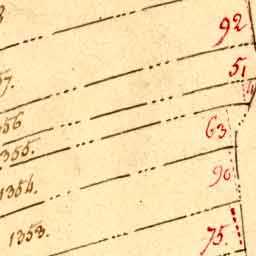 92
57. 51
356
355. 63
1354. 90
1353. 75.